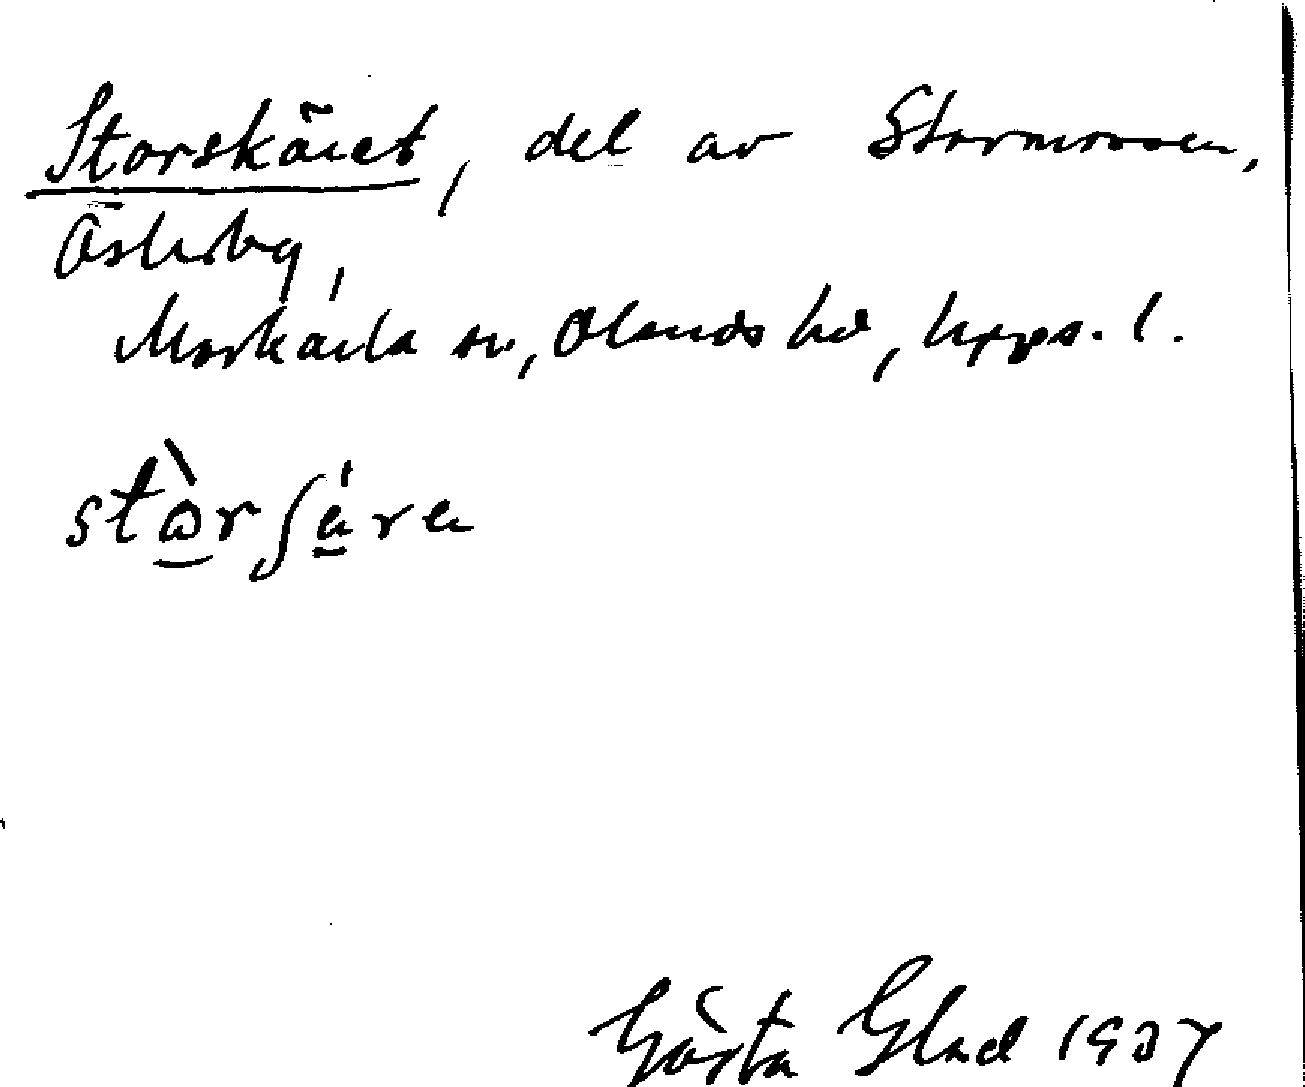 Storskäret, del av Stormossen,
Österby,
Morkarla sn, Olands hd, Upps. l.
stòrʃä́ra
Gösta Glad 1937